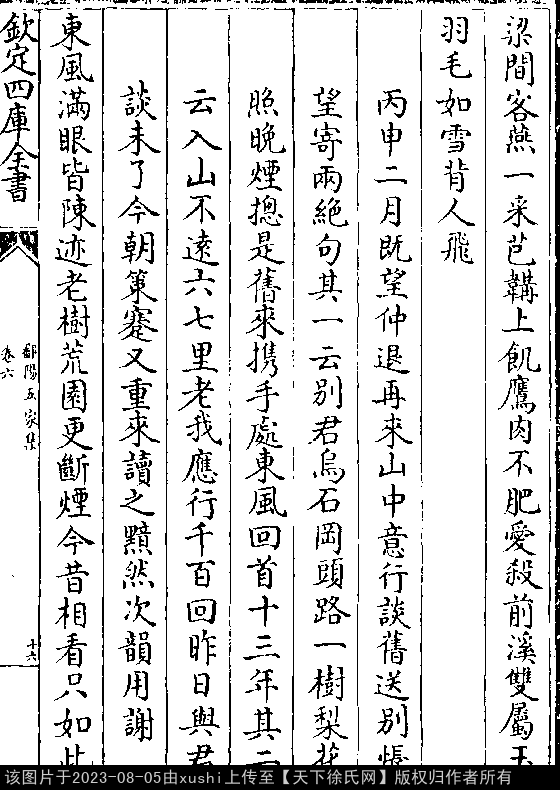 梁間客燕一来芭韝上飢鷹肉不肥愛殺前溪雙屬玉
羽毛如雪背人飛
丙申二月既望仲退再來山中意行談舊送別悵
望寄兩絶句其一云別君烏石岡頭路一樹梨花
照晚煙摠是舊來携手處東風回首十三年其二
云入山不逺六七里老我應行千百回昨日與君
談未了今朝策蹇又重來讀之黯然次韻用謝
東風滿眼皆陳迹老樹荒園更斷煙今昔相看只如此
欽定四庫全書
鄱陽五家集
卷六
十六
该图片于2023-08-05由xushi上传至【天下徐氏网】版权归作者所有